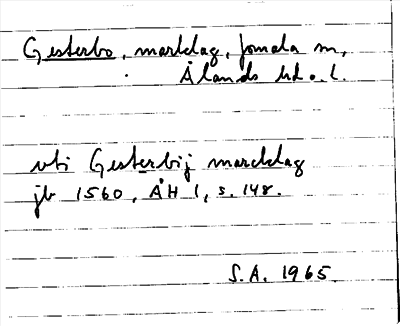 Gesterbo, marklag, Jomala sn,
Ålands hd o. l.
uti Gesterbij marcklag
jb 1560, ÅH 1, s. 148.
S.A. 1965.